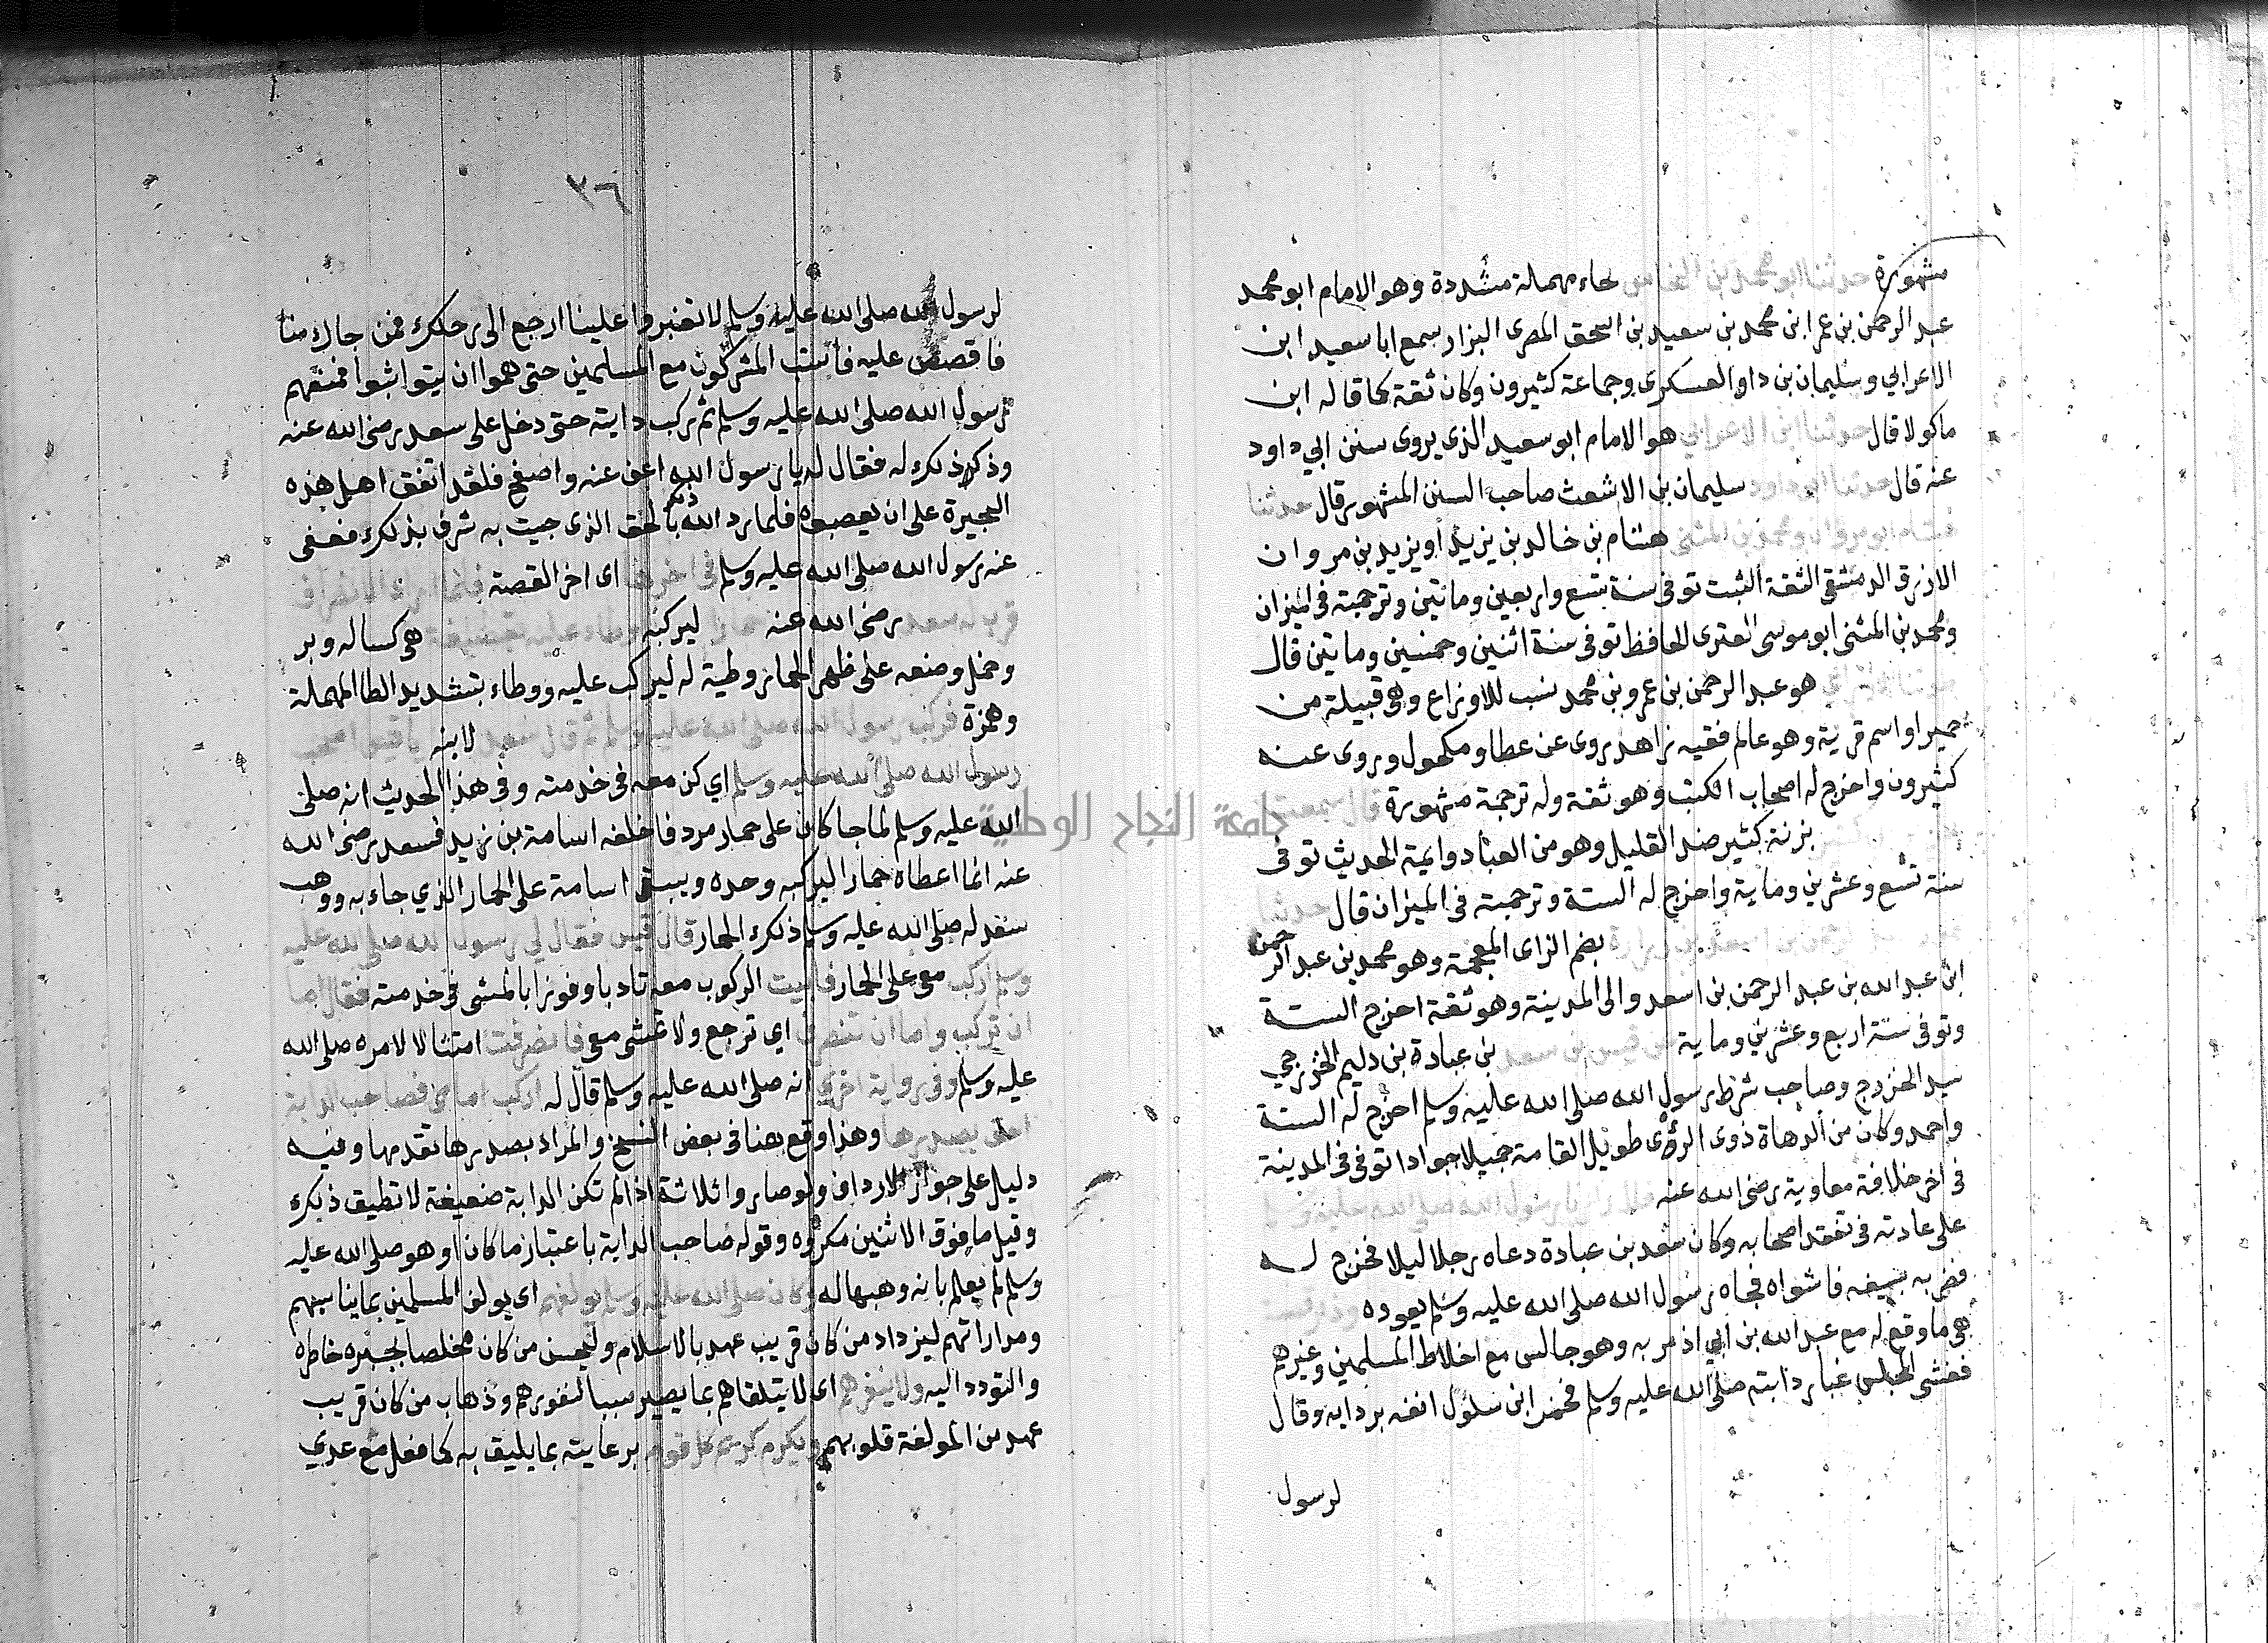 مشهورة حدثنا ابو محمد بن النحاس بحاء مهملة مشددة وهو الامام ابو محمد
عبد الرحمن بن عمر ابن محمد بن سعيد بن اسحق المصرى البزار سمع ابا سعيد ابن
الاعرابي وسليمان بن داو العسكرى وجماعة كثيرون وكان ثقة كما قاله ابن
ماكولا قال حدثنا ابن الاعرابي هو الامام ابو سعيد الذى يروى سنن ابي داود
عنه قال حدثنا ابو داود سليمان بن الاشعث صاحب السنن المشهور قال حدثنا
هشام ابو مروان ومحمد بن المثنى هشام بن خالد بن يزيد او يزيد بن مروان
الازرق الدمشقى الثقة الثبت توفى سنة تسع واربعين وماتين وترجمته فى الميزان
ومحمد بن المثنى ابو موسى العترى الحافظ توفى سنة اثنين وخمسين وماتين قال
هو عبد الرحمن بن عمرو بن محمد نسب للاوزاع وهى قبيلة من
حمير او اسم قرية وهو عالم فقيه زاهد يروى عن عطا ومكحول وروى عنه
كثيرون واخرج له اصحاب الكتب وهو ثقة وله ترجمة مشهورة قال سمعت
بزنة كثير ضد القليل وهو من العباد وايمة الحديث توفى
سنة تسع وعشرين وماية واخرج له الستة وترجمته فى الميزان قال حدثنا
بضم الزاى المعجمة وهو محمد بن عبد الرحمن
ابن عبد الله بن عبد الرحمن بن اسعد والى المدينة وهو ثقة اخرج الستة
وتوفى سنة اربع وعشرين وماية عن قيس بن سعد بن عبادة بن دليم الخزرجي
سيد الخزرج وصاحب شرط رسول الله صلى الله عليه وسلم اخرج له الستة
واحمد وكان من الدهاة ذوى الرؤى طويل القامة جميلا جوادا توفى فى المدينة
فى اخر خلافة معاوية رضى الله عنه قال زارنا رسول الله صلى الله عليه وسلم
على عادته فى تفقد اصحابه وكان سعد بن عبادة دعاه رجلا ليلا فخرج له
فضربه بسيفه فاشواه فجاه رسول الله صلى الله عليه وسلم يعوده
هى ما وقع له مع عبد الله بن ابي اذ مر به وهو جالس مع اخلاط المسلمين وغيرهم
فغشى المجلس غبار دابته صلى الله عليه وسلم فخمر ابن سلول انفه بردايه وقال
لرسول
٣٦
لرسول الله صلى الله عليه وسلم لا تغبروا علينا ارجع الى رحلك فمن جاك منا
فاقصص عليه فاستب المشركون مع المسلمين حتى هموا ان يتواثبوا فمنعهم
رسول الله صلى الله عليه وسلم ثم ركب دابته حتى دخل على سعد رضى الله عنه
وذكر ذلك له فقال له يا رسول الله اعف عنه واصفح فلقد اتفق اهل هذه
البحيرة على ان يعصبوه فلما رد الله ذلك بالحق الذى جيت به شرق بذلك فعفى
عنه رسول الله صلى الله عليه وسلم فى اخرها اى اخر القصة فلما اراد الانصراف
قرب له سعد رضى الله عنه حمارا ليركبه وطاء عليه بقطيفة هى كساله وبر
وخمل وضعه على ظهر الحمار وطية له ليركب عليه ووطاء بتشديد الطا المهملة
وهمزة فركب رسول الله صلى الله عليه وسلم ثم قال سعد لابنه يا قيس اصحب
رسول الله صلى الله عليه وسلم اي كن معه فى خدمته وفى هذا الحديث انه صلى
الله عليه وسلم لما جا كان على حمار مردفا خلفه اسامة بن زيد فسعد رضى الله
عنه انما اعطاه حمارا ليركبه وحده ويبقى اسامة على الحمار الذي جاء به ووهب
سعد له صلى الله عليه وسلم ذلك الحمار قال قيس فقال لي رسول الله صلى الله عليه
وسلم اركب معى على الحمار فابيت الركوب معه تادبا وفوزا بالمشى فى خدمته فقال اما
ان تركب واما ان تنصرف اي ترجع ولا تمشى معى فانصرفت امتثالا لامره صلى الله
عليه وسلم وفى رواية اخرى انه صلى الله عليه وسلم قال له اركب امامى فصاحب الدابة
احق بصدرها وهذا وقع هنا فى بعض النسخ والمراد بصدرها تقدمها وفيه
دليل على جواز الارداف ولو صاروا ثلاثة اذا لم تكن الدابة ضعيفة لا تطيق ذلك
وقيل ما فوق الاثنين مكروه وقوله صاحب الدابة باعتبار ما كان او هو صلى الله عليه
وسلم لم يعلم بانه وهبها له وكان صلى الله عليه وسلم يولفهم اى يولف المسلمين بما يناسبهم
ومداراتهم ليزداد من كان قريب عهد بالاسلام وليحسن من كان مخلصا بجبره خاطره
والتودد اليه ولا ينفرهم اى لا يتلقاهم بما يصير سببا لنفورهم وذهاب من كان قريب
عهد من المولفة قلوبهم ويكرم كريم كل قوم برعايته بما يليق به كما فعل مع عدي
جامعة النجاح الوطنية